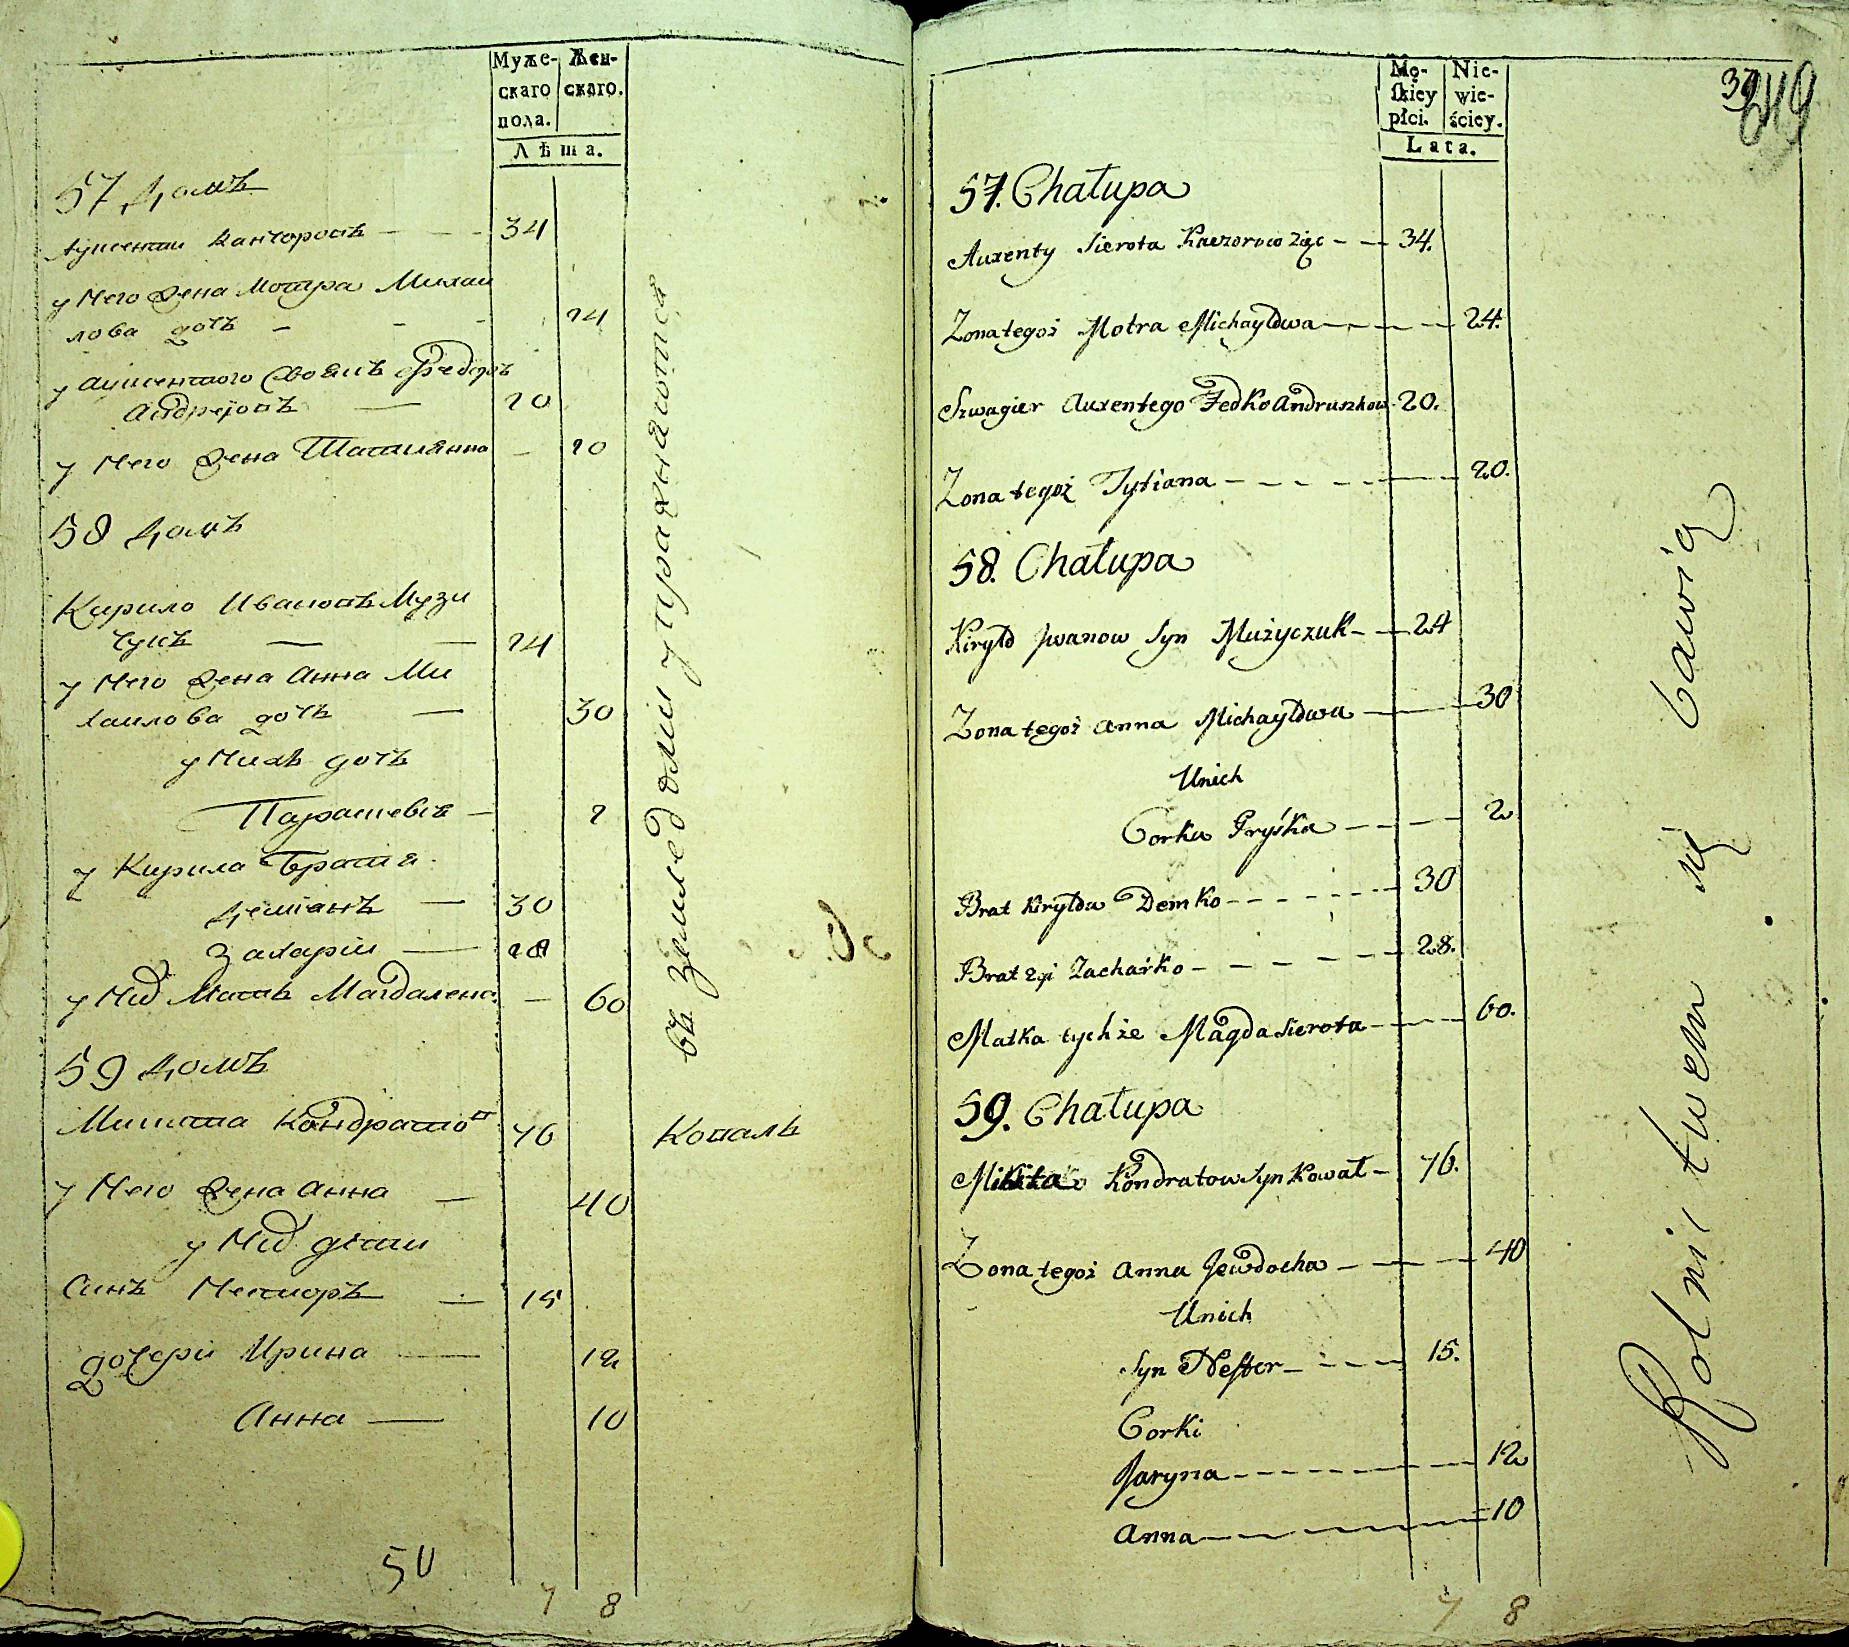 Муже-
скаго
пола.
Жен-
скаго.
Лѣта.
57 Домъ
34
у Него Жена Мотра Михаи
лова дочь - - - 24
Федоръ
Андреювъ — 20
у Него Жена Татиянна — 20
58 Домъ
Кирило Ивановъ Музи
чукъ — — 24
у Него Жена Анна Ми
хаилова дочь — 30
у Нихъ дочь
Парасневія — 2
у Кирила Братія
Деміянъ — 30
Захарій — 28
у Них Мать Магдалена — 60
59 Домъ
Микита Кондратов 76 Коваль
у Него Жена Анна — 40
у Них дѣти
Синъ Несторъ — 15
дочери Ирина — 12
Анна — 10
въ земледѣліи упражняются
50
7 8
Mę-
skiey
płci.
Nie-
wie-
ściey.
Lata.
249
57. Chałupa
Auxenty Sierota Kaczorow Zięc - - 34.
Zona tegoż Motra Michayłowa - - - 24.
Szwagier Auxentego Fedko Andruszkow 20.
Zona tegoż Tytiana - - - - 20.
58. Chałupa
Kiryło Jwanow Syn Muzyczuk - - 24
Zona tegoż Anna Michayłowa — 30
U nich
Corka Pryśka - - - 2
Brat Kiryła Demko - - - - 30
Brat 2gi Zacharko - - - - 28.
Matka tychże Magda Sierota - - - 60.
59. Chałupa
Mikita Kondratow Syn Kowal - 76.
Zona tegoż Anna Jewdocha - - - 40
U nich
Syn Nester - - - - 15.
Corki
Jaryna - - - - - - 12
Anna - - - - - 10
Rolnictwem się bawią
7 8